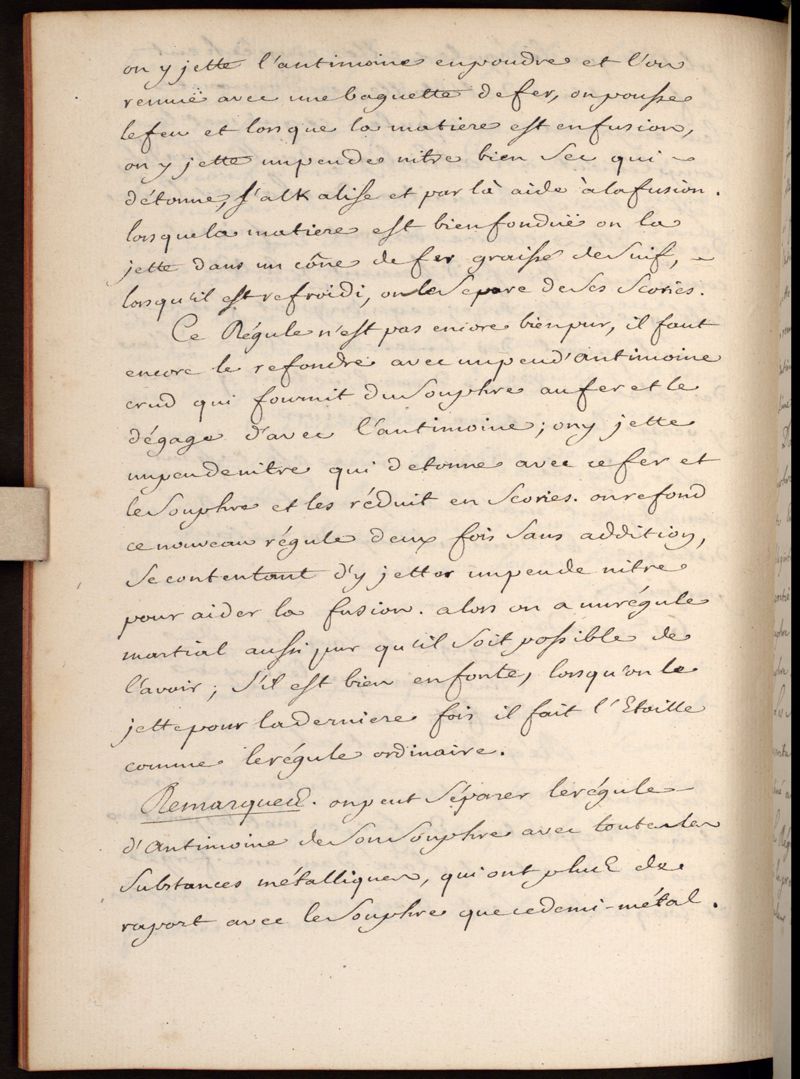 on y jette l'antimoine en poudre et l'on
remuë avec une baguette de fer, on pousse
le feu et lorsque la matiere est en fusion,
on y jette un peu de nitre bien sec qui
détonne, s'alkalise et par là aide à la fusion.
lorsque la matiere est bien fonduë on la
jette dans un cône de fer graissé de suif,
lorsqu'il est refroidi, on le separe de ses scories.
Ce Régule n'est pas encore bien pur, il faut
encore le refondre avec un peu d'antimoine
crud qui fournit du souphre au fer et le
dégage d'avec l'antimoine; on y jette
un peu de nitre qui detonne avec ce fer et
le souphre et les réduit en scories. on refond
ce nouveau régule deux fois sans addition,
se contentant d'y jetter un peu de nitre
pour aider la fusion. alors on a un régule
martial aussi pur qu'il soit possible de
l'avoir; s'il est bien en fonte, lorsqu'on le
jette pour la derniere fois il fait l'Etoille
comme le régule ordinaire.
Remarques. on peut séparer le régule
d'Antimoine de son souphre avec toutes les
substances métalliques, qui ont plus de
raport avec le souphre que ce demi-métal.